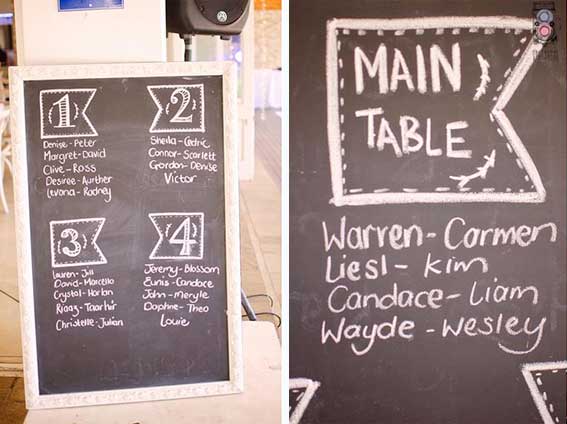 1
Denise-Peter
Margret-David
Clive-Ross
Desiree-Aurther
Levona-Radney
2
Sheila-Cedric
Connor-Scarlett
Gordon-Denise
Victor
3
Lauren-Jill
David-Marcello
Crystal-Harlan
Riaaz-Taarhir
Christelle-Julian
4
Jeremy-Blossom
Eunis-Candace
John-Meryle
Daphne-Theo
Louie
MAIN
TABLE
Warren-Carmen
Liesl-Kim
Candace-Liam
Wayde-Wesley